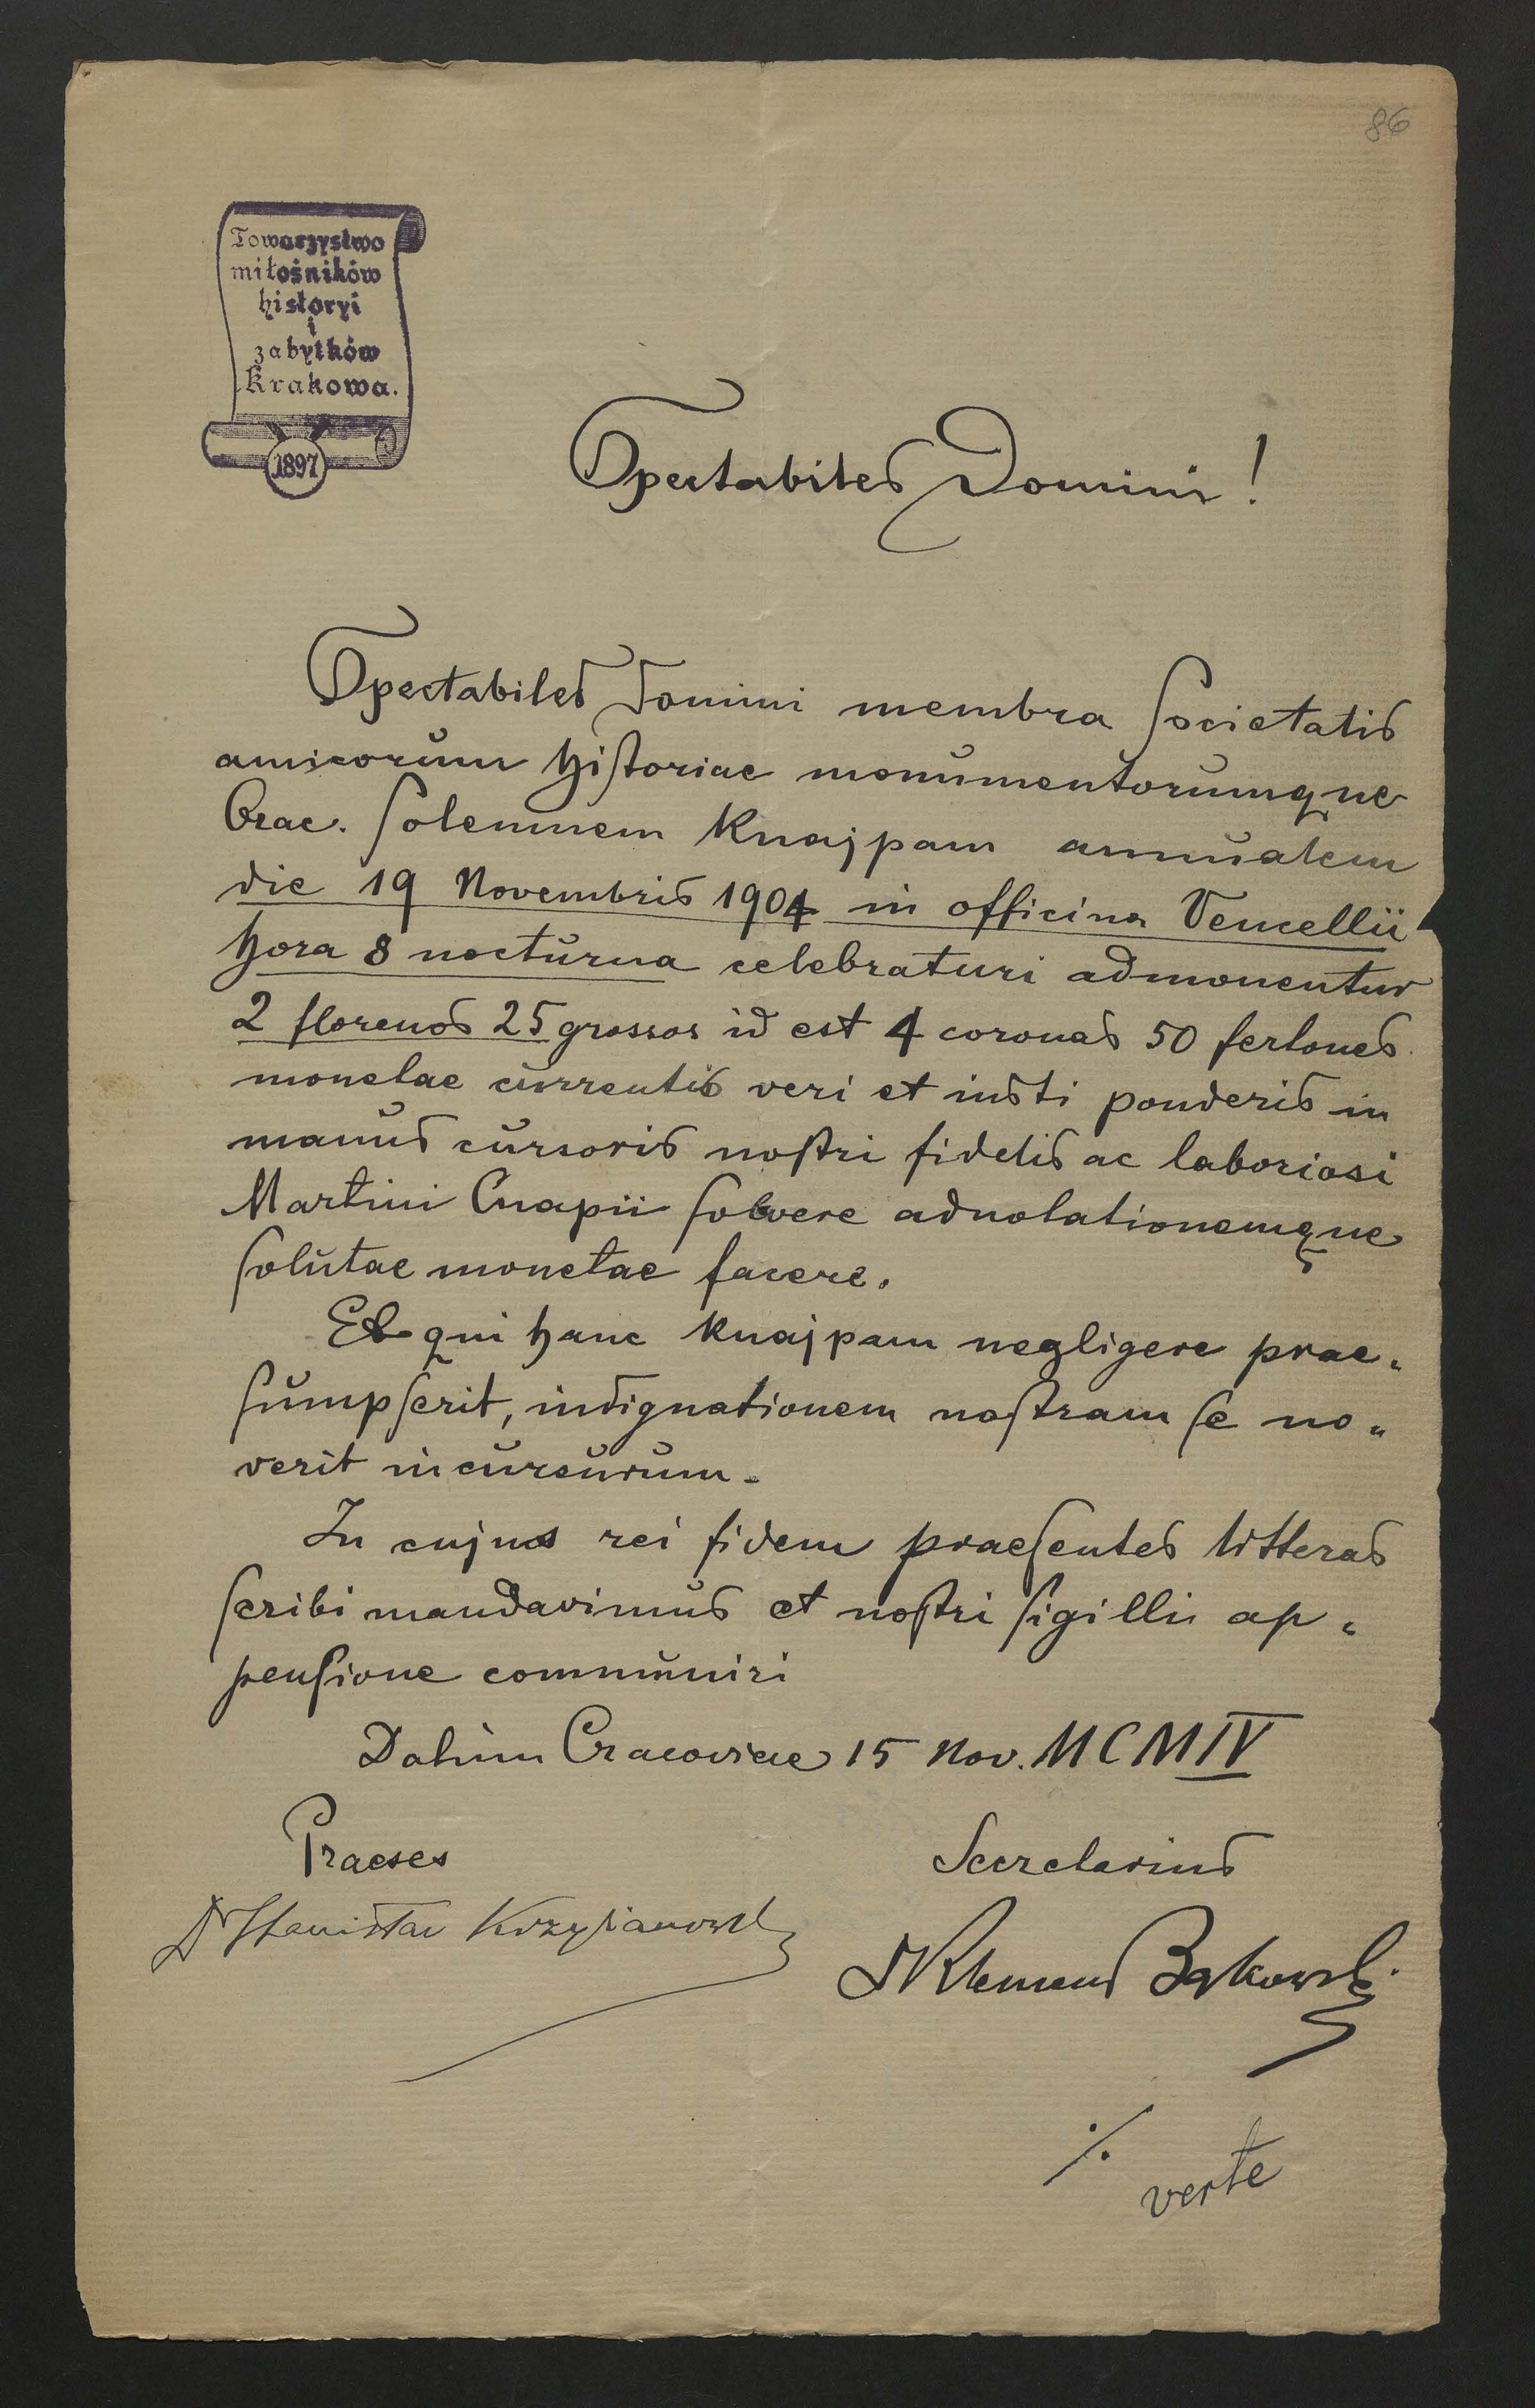 86
Towarzystwo
miłośników
historyi
i
zabytków
Krakowa.
1897
Spectabiles Domini!
Spectabiles Domini membra Societatis
amicorum historiae monumentorumque
Crac. solemnem Knajpam annualem
die 19 Novembris 1904 in officina Vencellii
hora 8 nocturna celebraturi admonentur
2 florenos 25 grossos id est 4 coronas 50 fertones
monetae currentis veri et iusti ponderis in
manus cursoris nostri fidelis ac laboriosi
Martini Cnapii solvere adnotationemque
solutae monetae facere.
Et qui hanc Knajpam negligere prae-
sumpserit, indignationem nostram se no-
verit incursurum.
In cujus rei fidem praesentes litteras
scribi mandavimus et nostri sigilli ap-
pensione communiri
Datum Cracoviae 15 Nov. MCMIV
Praeses
Secretarius
Dr Stanisław Krzyżanowski
Dr Klemens Bąkowski
./.
verte